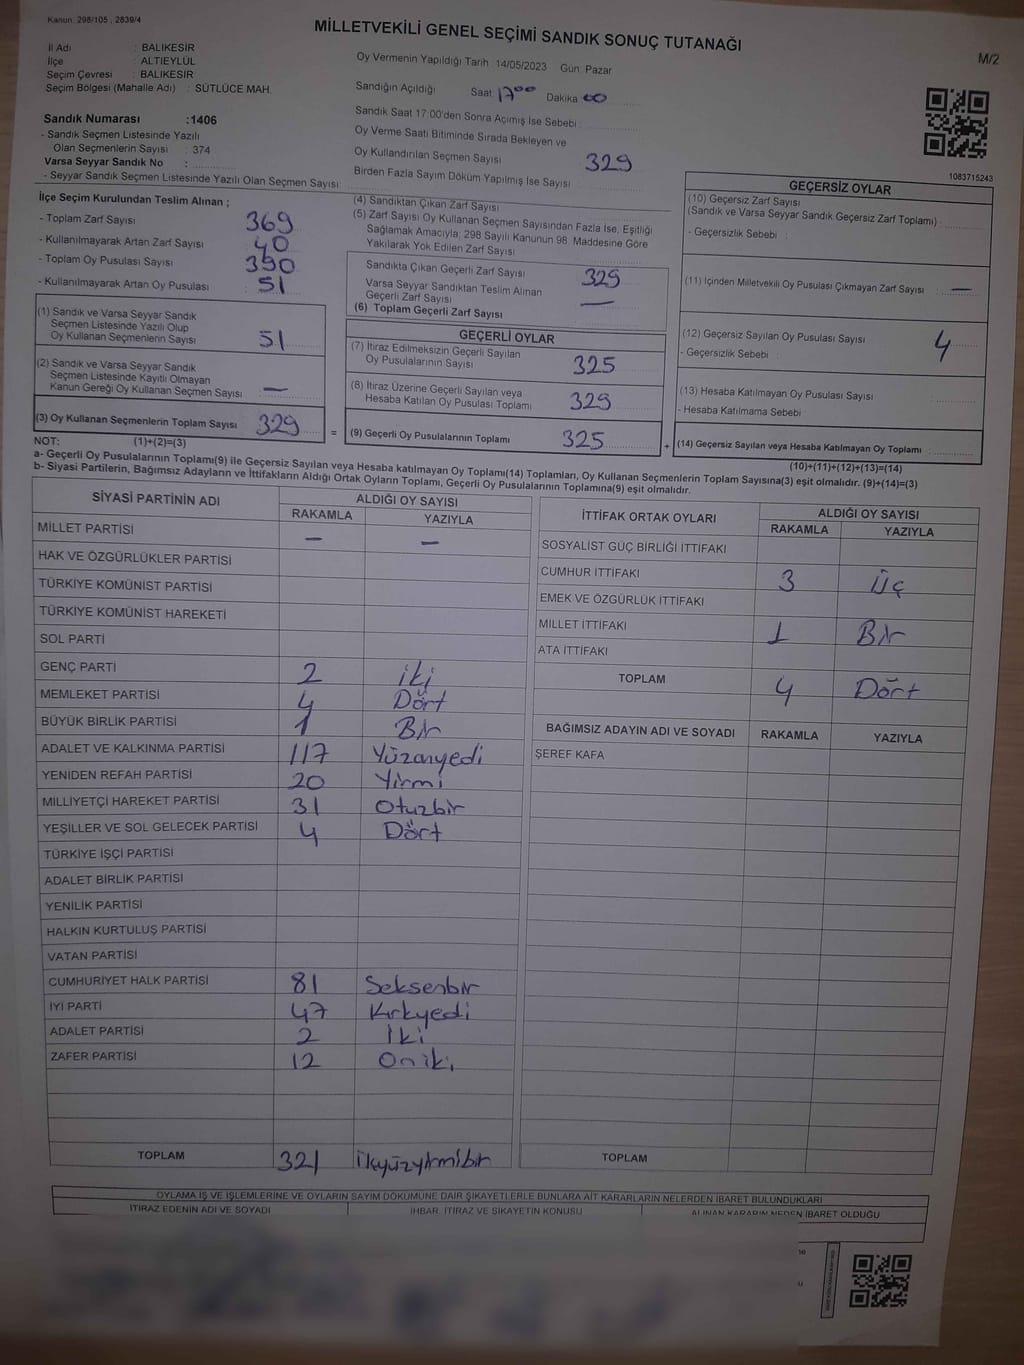 Kanun: 298/105 , 2839/4
MİLLETVEKİLİ GENEL SEÇİMİ SANDIK SONUÇ TUTANAĞI
M/2
İl Adı : BALIKESİR
İlçe : ALTIEYLÜL
Seçim Çevresi : BALIKESİR
Seçim Bölgesi (Mahalle Adı) : SÜTLÜCE MAH.
Sandık Numarası :1406
- Sandık Seçmen Listesinde Yazılı
Olan Seçmenlerin Sayısı : 374
Varsa Seyyar Sandık No :
- Seyyar Sandık Seçmen Listesinde Yazılı Olan Seçmen Sayısı:
Oy Vermenin Yapıldığı Tarih : 14/05/2023 Gün: Pazar
Sandığın Açıldığı Saat 17:00 Dakika 00
Sandık Saat 17:00'den Sonra Açımış İse Sebebi :
Oy Verme Saati Bitiminde Sırada Bekleyen ve
Oy Kullandırılan Seçmen Sayısı 329
Birden Fazla Sayım Döküm Yapılmış İse Sayısı
1083715243
İlçe Seçim Kurulundan Teslim Alınan ;
- Toplam Zarf Sayısı 369
- Kullanılmayarak Artan Zarf Sayısı 40
- Toplam Oy Pusulası Sayısı 390
- Kullanılmayarak Artan Oy Pusulası 51
(1) Sandık ve Varsa Seyyar Sandık
Seçmen Listesinde Yazılı Olup
Oy Kullanan Seçmenlerin Sayısı 51
(2) Sandık ve Varsa Seyyar Sandık
Seçmen Listesinde Kayıtlı Olmayan
Kanun Gereği Oy Kullanan Seçmen Sayısı —
(3) Oy Kullanan Seçmenlerin Toplam Sayısı 329
(1)+(2)=(3)
(4) Sandıktan Çıkan Zarf Sayısı
(5) Zarf Sayısı Oy Kullanan Seçmen Sayısından Fazla İse, Eşitliği
Sağlamak Amacıyla; 298 Sayılı Kanunun 98. Maddesine Göre
Yakılarak Yok Edilen Zarf Sayısı
Sandıkta Çıkan Geçerli Zarf Sayısı 329
Varsa Seyyar Sandıktan Teslim Alınan
Geçerli Zarf Sayısı —
(6) Toplam Geçerli Zarf Sayısı
GEÇERLİ OYLAR
(7) İtiraz Edilmeksizin Geçerli Sayılan
Oy Pusulalarının Sayısı 325
(8) İtiraz Üzerine Geçerli Sayılan veya
Hesaba Katılan Oy Pusulası Toplamı 329
= (9) Geçerli Oy Pusulalarının Toplamı 325
GEÇERSİZ OYLAR
(10) Geçersiz Zarf Sayısı
(Sandık ve Varsa Seyyar Sandık Geçersiz Zarf Toplamı)
- Geçersizlik Sebebi :
(11) İçinden Milletvekili Oy Pusulası Çıkmayan Zarf Sayısı : —
(12) Geçersiz Sayılan Oy Pusulası Sayısı : 4
- Geçersizlik Sebebi :
(13) Hesaba Katılmayan Oy Pusulası Sayısı
- Hesaba Katılmama Sebebi
+ (14) Geçersiz Sayılan veya Hesaba Katılmayan Oy Toplamı :
(10)+(11)+(12)+(13)=(14)
NOT:
a- Geçerli Oy Pusulalarının Toplamı(9) ile Geçersiz Sayılan veya Hesaba katılmayan Oy Toplamı(14) Toplamları, Oy Kullanan Seçmenlerin Toplam Sayısına(3) eşit olmalıdır. (9)+(14)=(3)
b- Siyasi Partilerin, Bağımsız Adayların ve İttifakların Aldığı Ortak Oyların Toplamı, Geçerli Oy Pusulalarının Toplamına(9) eşit olmalıdır.
SİYASİ PARTİNİN ADI ALDIĞI OY SAYISI
RAKAMLA YAZIYLA
MİLLET PARTİSİ — —
HAK VE ÖZGÜRLÜKLER PARTİSİ
TÜRKİYE KOMÜNİST PARTİSİ
TÜRKİYE KOMÜNİST HAREKETİ
SOL PARTİ
GENÇ PARTİ 2 iki
MEMLEKET PARTİSİ 4 Dört
BÜYÜK BİRLİK PARTİSİ 1 Bir
ADALET VE KALKINMA PARTİSİ 117 Yüzonyedi
YENİDEN REFAH PARTİSİ 20 Yirmi
MİLLİYETÇİ HAREKET PARTİSİ 31 Otuzbir
YEŞİLLER VE SOL GELECEK PARTİSİ 4 Dört
TÜRKİYE İŞÇİ PARTİSİ
ADALET BİRLİK PARTİSİ
YENİLİK PARTİSİ
HALKIN KURTULUŞ PARTİSİ
VATAN PARTİSİ
CUMHURİYET HALK PARTİSİ 81 Seksenbir
İYİ PARTİ 47 Kırkyedi
ADALET PARTİSİ 2 İki
ZAFER PARTİSİ 12 Oniki
TOPLAM 321
İTTİFAK ORTAK OYLARI ALDIĞI OY SAYISI
RAKAMLA YAZIYLA
SOSYALİST GÜÇ BİRLİĞİ İTTİFAKI
CUMHUR İTTİFAKI 3 Üç
EMEK VE ÖZGÜRLÜK İTTİFAKI
MİLLET İTTİFAKI 1 Bir
ATA İTTİFAKI
TOPLAM 4 Dört
BAĞIMSIZ ADAYIN ADI VE SOYADI RAKAMLA YAZIYLA
ŞEREF KAFA
TOPLAM
OYLAMA İŞ VE İŞLEMLERİNE VE OYLARIN SAYIM DÖKÜMÜNE DAİR ŞİKAYETLERLE BUNLARA AİT KARARLARIN NELERDEN İBARET BULUNDUKLARI
İTİRAZ EDENİN ADI VE SOYADI İHBAR, İTİRAZ VE ŞİKAYETİN KONUSU ALINAN KARARIN NEDEN İBARET OLDUĞU